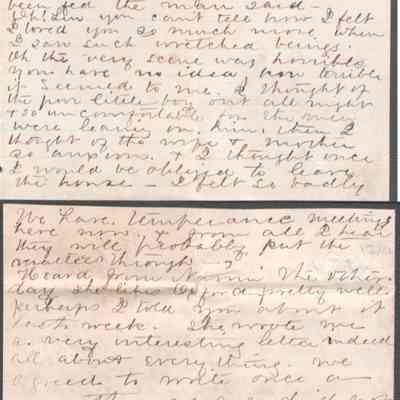 been fed the man said –
Oh! Lin you can't tell how I felt
I loved you so much more when
I saw such wretched beings.
Oh the very scene was horrible
you have no idea how terrible
it seemed to me. I thought of
the poor little boy out all night
& so uncomfortable for the men
were leaning on him, then I
thought of the wife & mother
so anxious. & I thought once
I would be obliged to leave
the house – I felt so badly
We have Temperance meetings
here now. & from all I hear
they will probably put the
matter through.
Heard from Nannie the other
day she likes for a pretty well
perhaps I told you about it
last week. She wrote me
a very interesting letter indeed
all about every thing. we
agreed to write once a